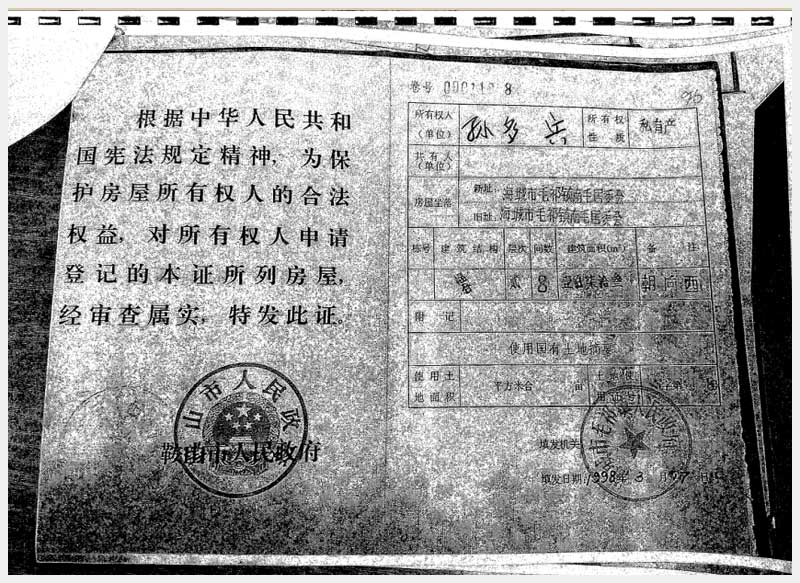 根据中华人民共和
国宪法规定精神，为保
护房屋所有权人的合法
权益，对所有权人申请
登记的本证所列房屋，
经审查属实，特发此证。
山市人民政
鞍山市人民政府
卷号
所有权人（单位） 孙多兵 所有权性质 私有产
共有人（单位）
房屋坐落 新址：海城市毛祁镇南毛居委会
旧址：海城市毛祁镇南毛居委会
栋号 建筑结构 层次 间数 建筑面积(m²) 备注
贰 8 朝向西
附记
使用国有土地摘要
使用土地面积 平方米合 亩
填发机关
填发日期 1998年3月 日